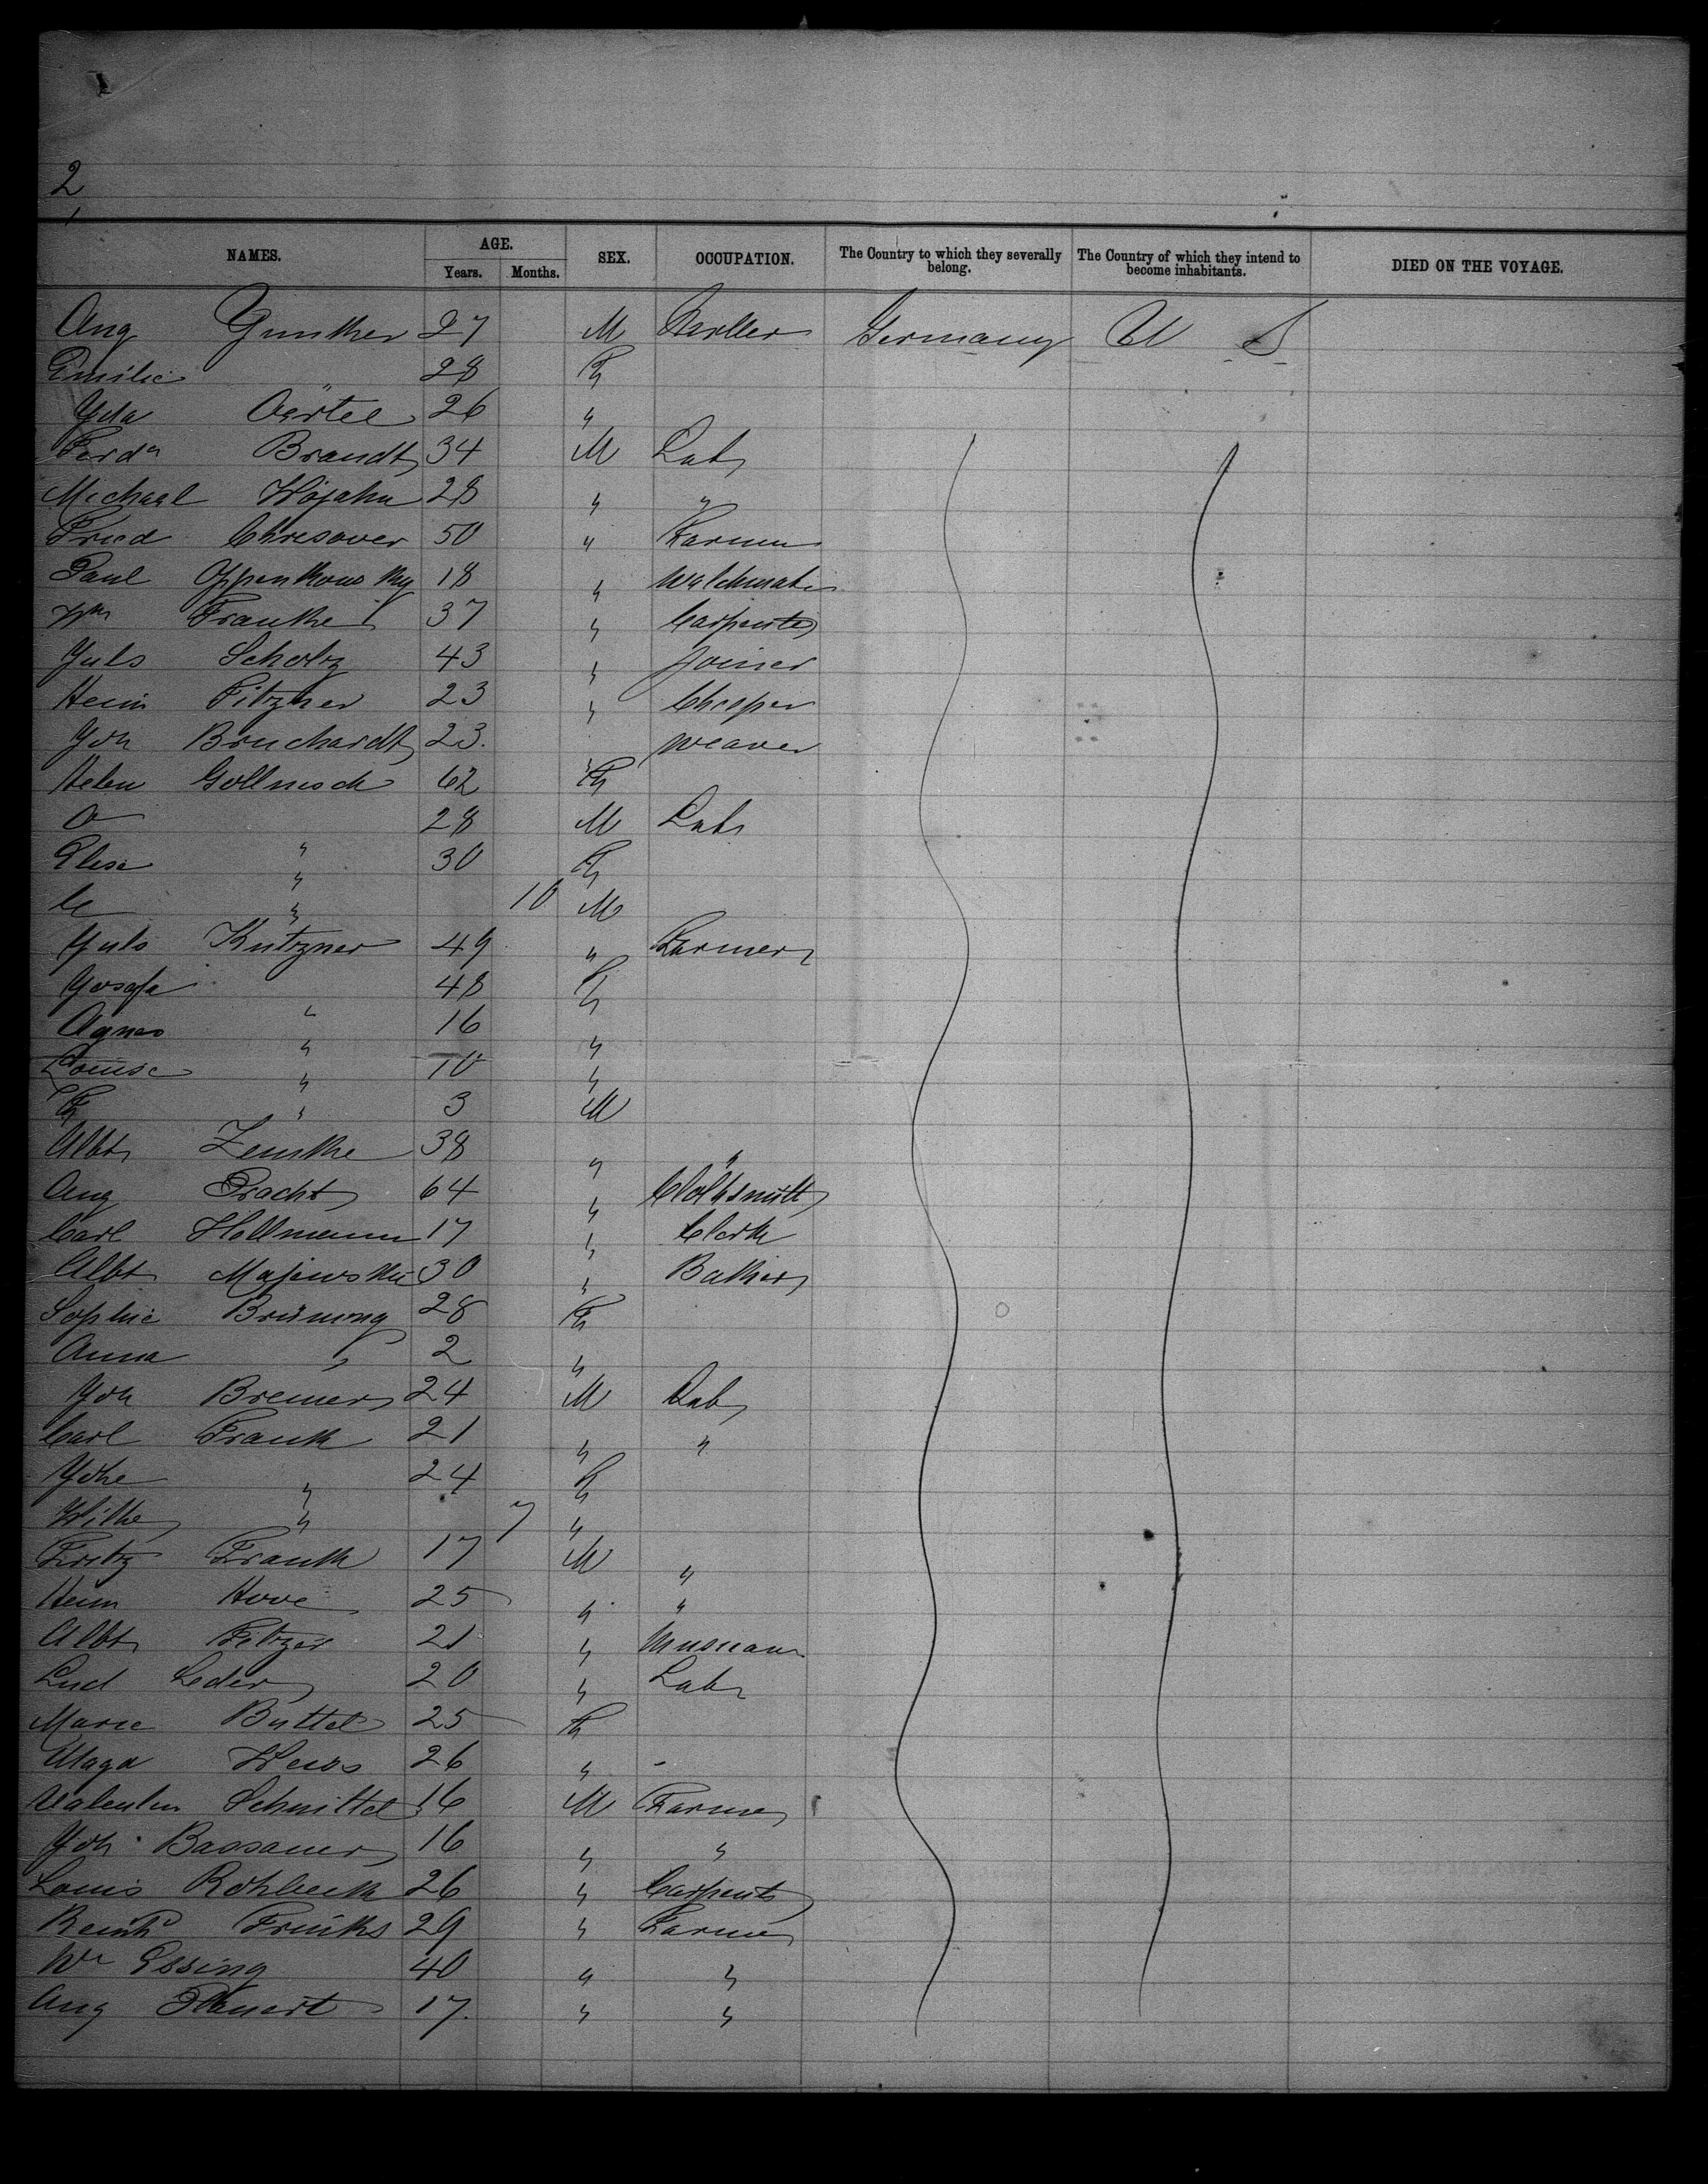 2
NAMES. AGE. Years. Months. SEX. OCCUPATION. The Country to which they severally belong. The Country of which they intend to become inhabitants. DIED ON THE VOYAGE.
Aug Gunther 27 M Germany U S
Emilie " 28 F
Ida Oertel 26 "
Ferdn Brandt 34 M Lab
Michael Wojahn 28 " "
Fried 50 "
Paul 18 "
Wm Franke 37 " Carpenter
Juls Scholz 43 " Joiner
Heinr Fitzner 23 "
Joh Bruchardt 23 " weaver
Helen Gollnisch 62 F
O " 28 M Lab
Elise " 30 F
C " 10 M
Juls Kutzner 49 " Farmer
Josefa " 48 F
Agnes " 16 "
Louise " 10 "
F " 3 M
Albt Zemke 38 " "
Aug Pracht 64 "
Carl Hollmann 17 " Clerk
Albt Majewski 30 "
Sophie Brüning 28 F
Anna " 2 "
Joh Bremer 24 M Lab
Carl Frank 21 " "
Johe " 24 F
Wilhe " 7 "
Fritz Frank 17 M "
Heinr Hove 25 " "
Albt Fitzer 21 " Musician
Lud Leder 20 " Lab
Marie Buttel 25 F
Maga Weiss 26 " -
Valentin Schnittel 16 M Farmer
Joh Bassauer 16 " "
Louis Rohbeck 26 " Carpenter
Reinhd 29 " Farmer
Wm Essing 40 " "
Aug 17 " "